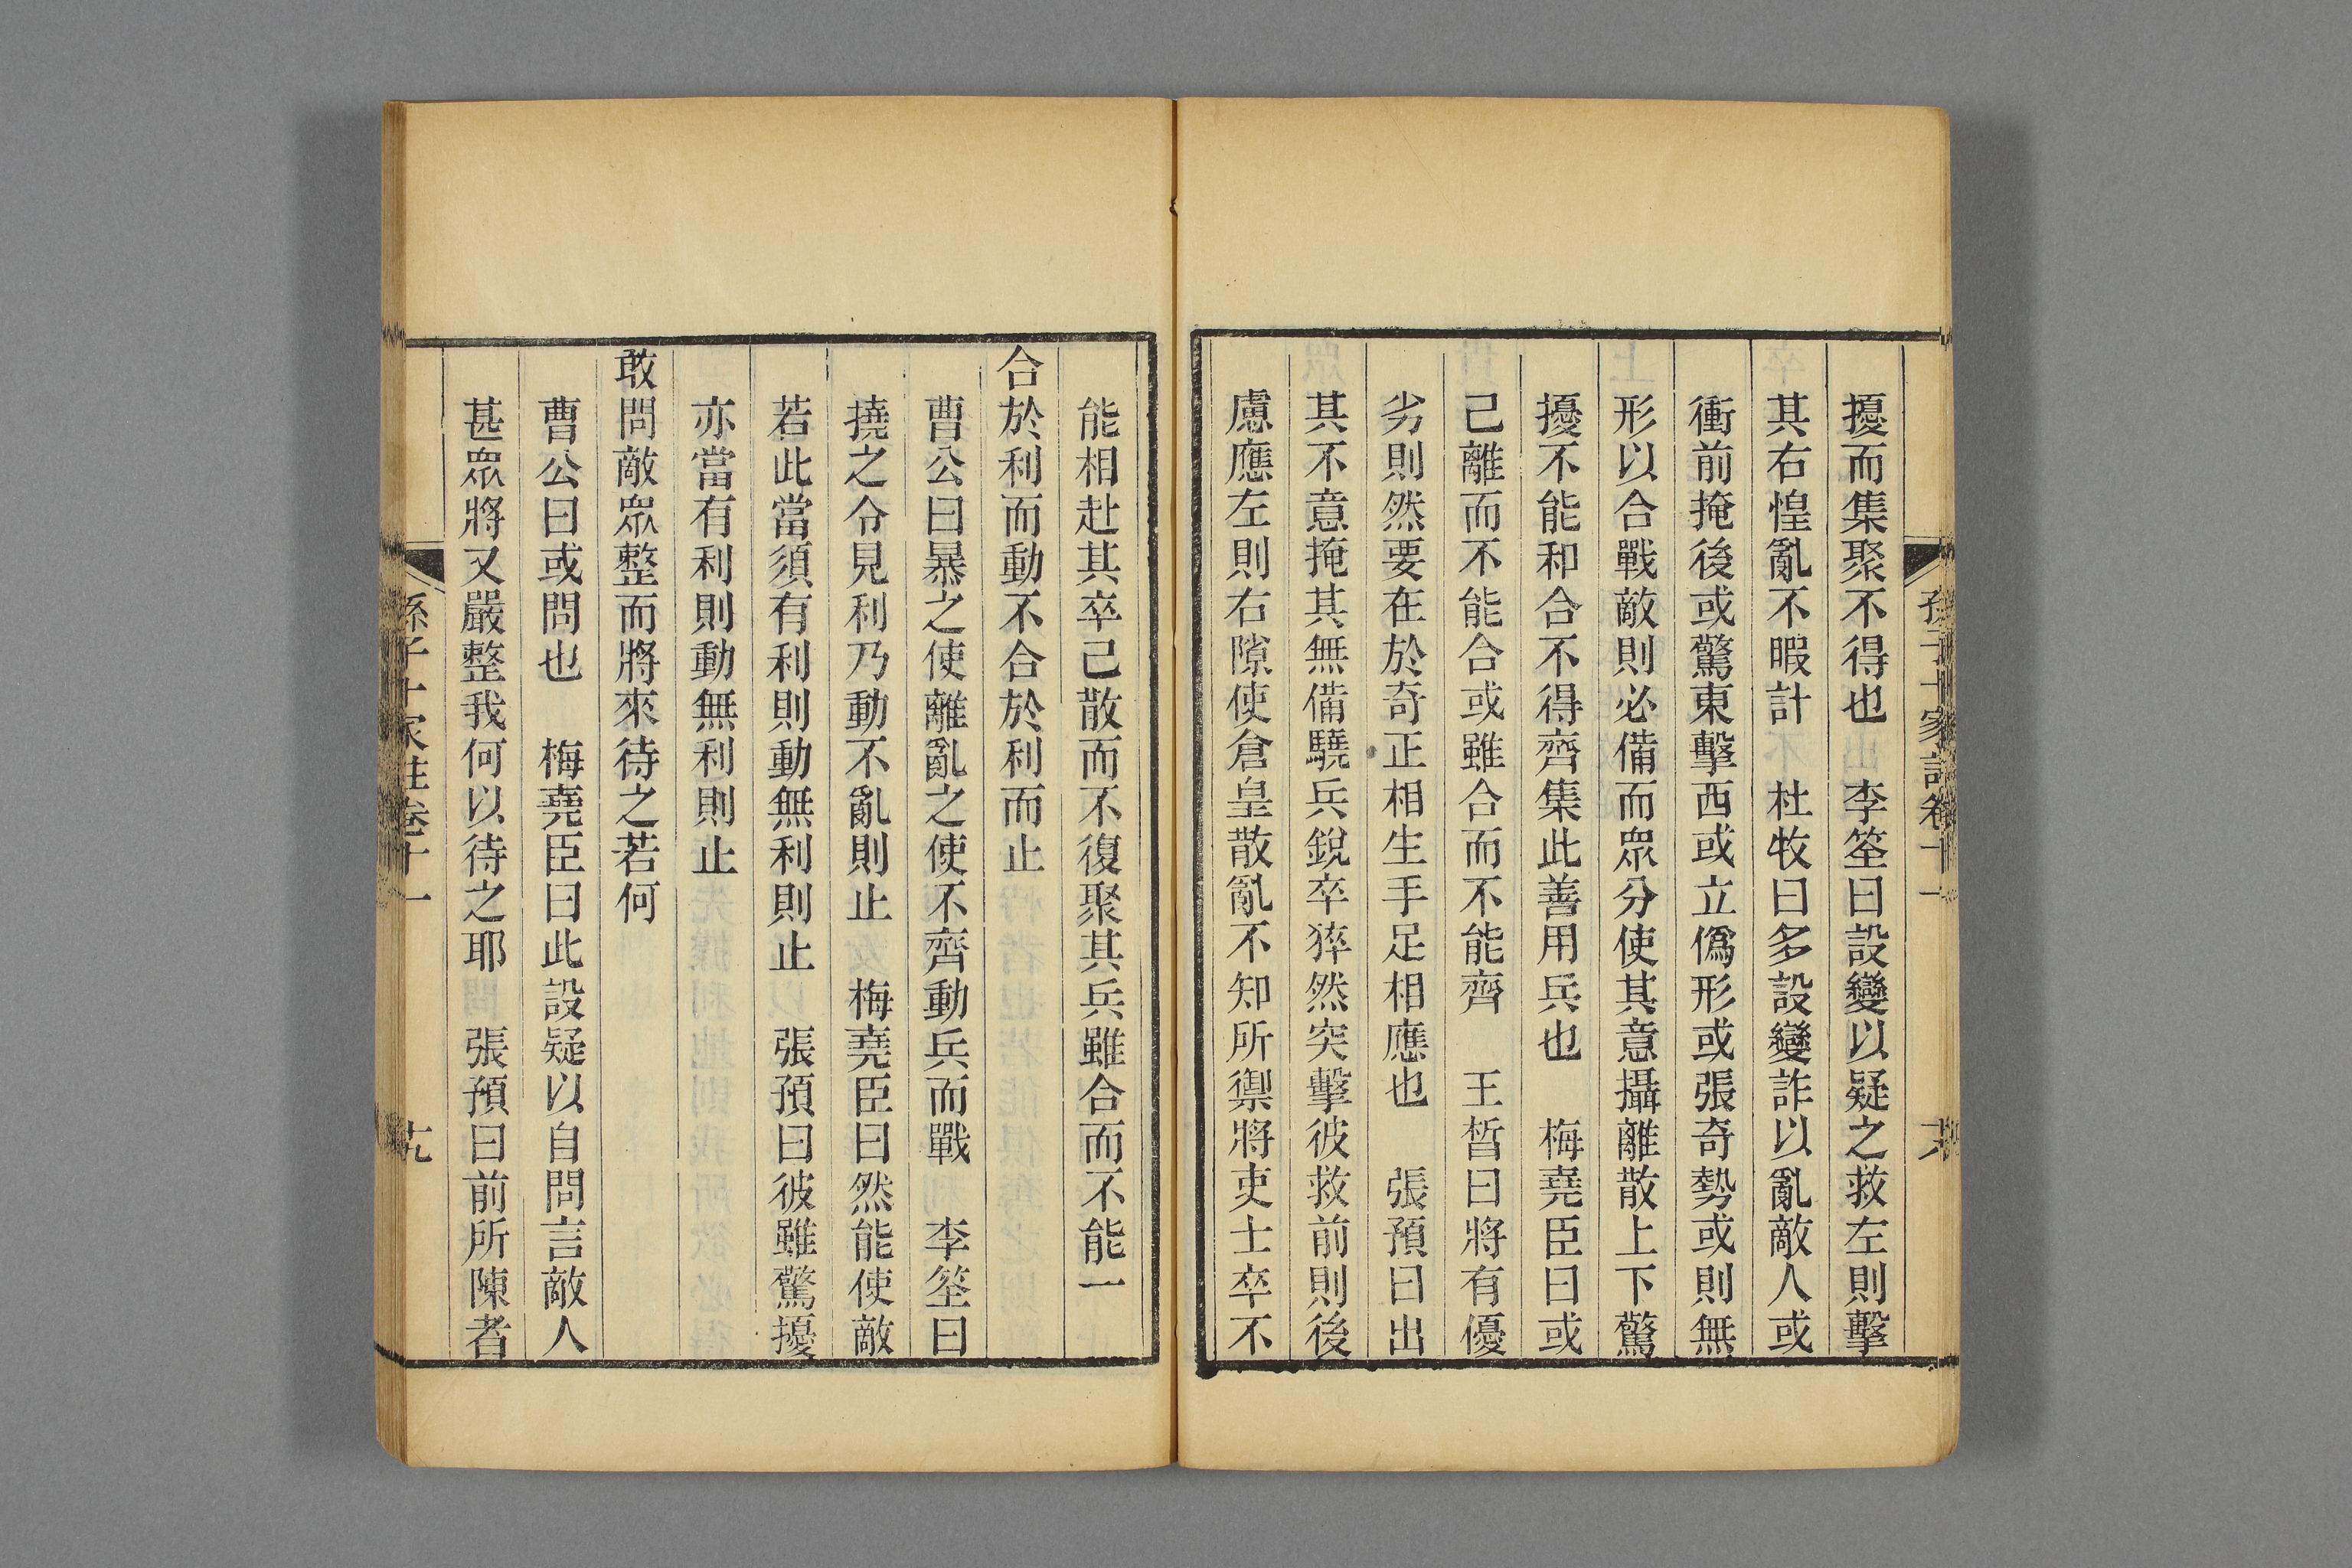 擾而集聚不得也　李筌曰設變以疑之救左則擊
其右惶亂不暇計　杜牧曰多設變詐以亂敵人或
衝前掩後或驚東擊西或立僞形或張奇勢或則無
形以合戰敵則必備而眾分使其意攝離散上下驚
擾不能和合不得齊集此善用兵也　梅堯臣曰或
己離而不能合或雖合而不能齊　王晳曰將有優
劣則然要在於奇正相生手足相應也　張預曰出
其不意掩其無備驍兵銳卒猝然突擊彼救前則後
慮應左則右隙使倉皇散亂不知所禦將吏士卒不
能相赴其卒己散而不復聚其兵雖合而不能一
合於利而動不合於利而止
曹公曰暴之使離亂之使不齊動兵而戰　李筌曰
撓之令見利乃動不亂則止　梅堯臣曰然能使敵
若此當須有利則動無利則止　張預曰彼雖驚擾
亦當有利則動無利則止
敢問敵眾整而將來待之若何
曹公曰或問也　梅堯臣曰此設疑以自問言敵人
甚眾將又嚴整我何以待之耶　張預曰前所陳者
孫子十家註卷十一